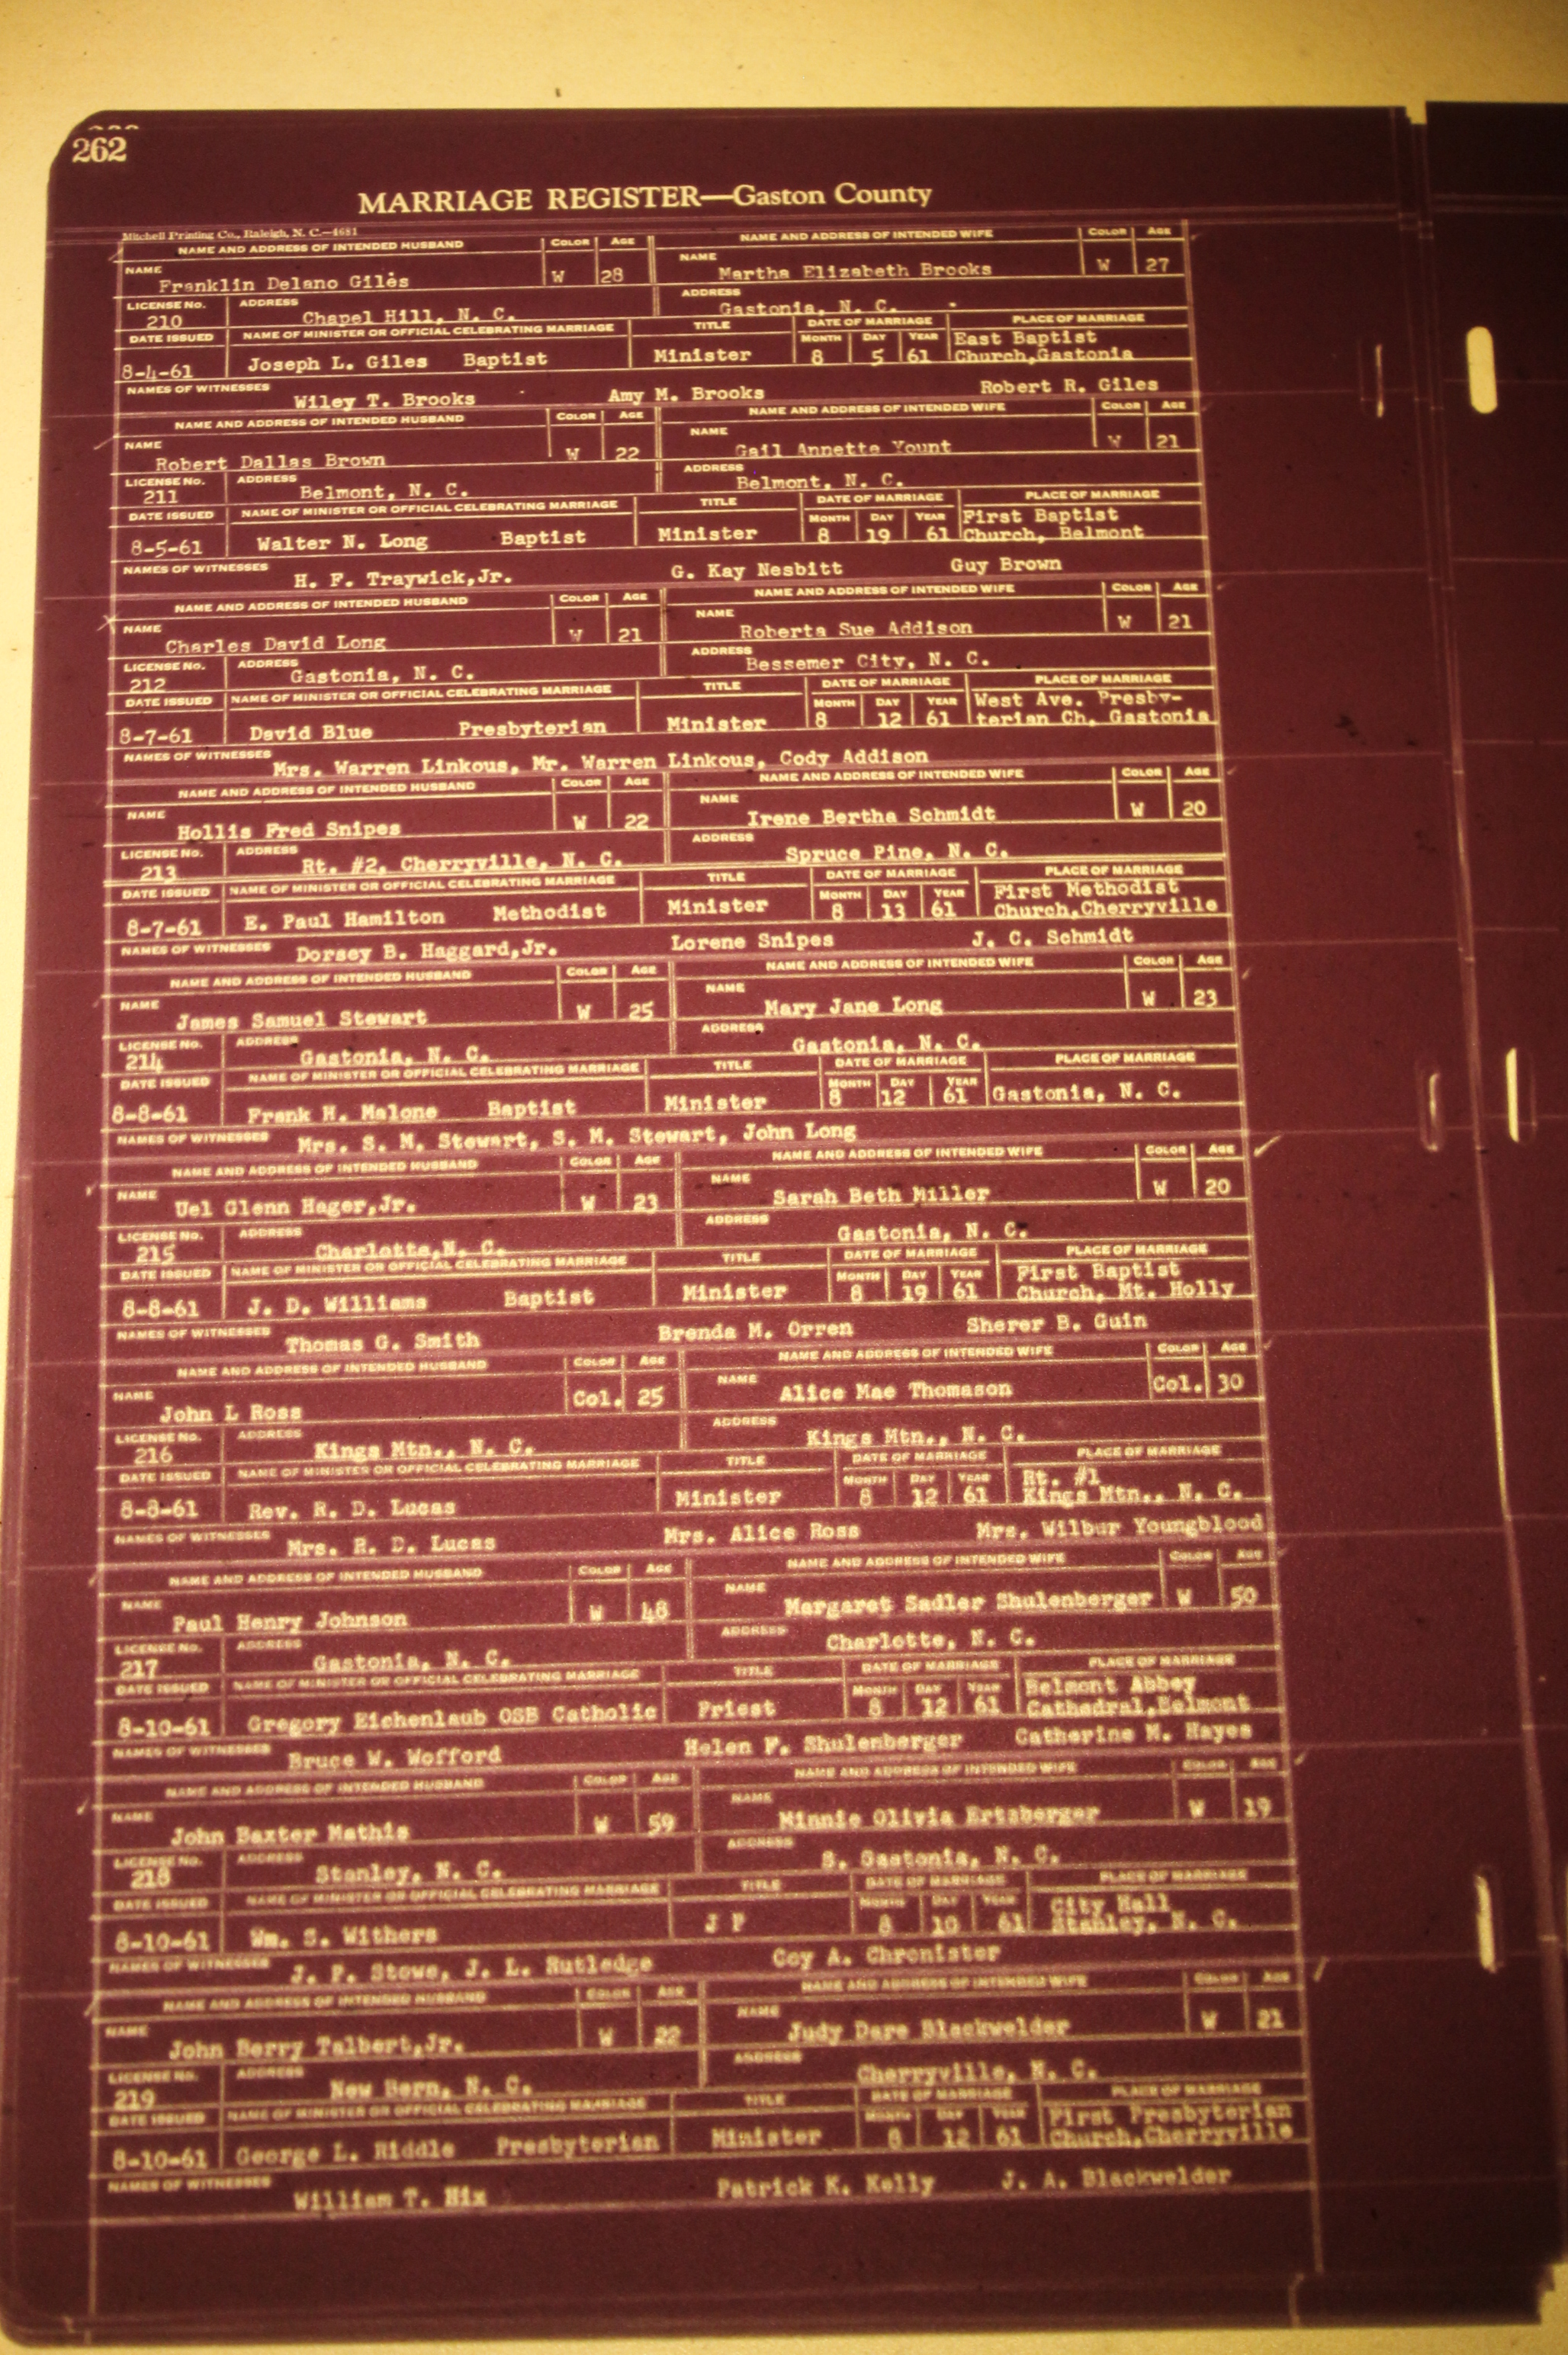 262
MARRIAGE REGISTER—Gaston County
Mitchell Printing Co., Raleigh, N. C.—4681
NAME AND ADDRESS OF INTENDED HUSBAND COLOR AGE NAME AND ADDRESS OF INTENDED WIFE COLOR AGE
NAME Franklin Delano Giles W 28 NAME Martha Elizabeth Brooks W 27
LICENSE No. 210 ADDRESS Chapel Hill, N. C. ADDRESS Gastonia, N. C.
DATE ISSUED NAME OF MINISTER OR OFFICIAL CELEBRATING MARRIAGE TITLE DATE OF MARRIAGE PLACE OF MARRIAGE
MONTH DAY YEAR East Baptist
8-4-61 Joseph L. Giles Baptist Minister 8 5 61 Church,Gastonia
NAMES OF WITNESSES Wiley T. Brooks Amy M. Brooks Robert R. Giles
NAME AND ADDRESS OF INTENDED HUSBAND COLOR AGE NAME AND ADDRESS OF INTENDED WIFE COLOR AGE
NAME Robert Dallas Brown W 22 NAME Gail Annette Yount W 21
LICENSE No. 211 ADDRESS Belmont, N. C. ADDRESS Belmont, N. C.
DATE ISSUED NAME OF MINISTER OR OFFICIAL CELEBRATING MARRIAGE TITLE DATE OF MARRIAGE PLACE OF MARRIAGE
MONTH DAY YEAR First Baptist
8-5-61 Walter N. Long Baptist Minister 8 19 61 Church, Belmont
NAMES OF WITNESSES H. F. Traywick,Jr. G. Kay Nesbitt Guy Brown
NAME AND ADDRESS OF INTENDED HUSBAND COLOR AGE NAME AND ADDRESS OF INTENDED WIFE COLOR AGE
NAME Charles David Long W 21 NAME Roberta Sue Addison W 21
LICENSE No. 212 ADDRESS Gastonia, N. C. ADDRESS Bessemer City, N. C.
DATE ISSUED NAME OF MINISTER OR OFFICIAL CELEBRATING MARRIAGE TITLE DATE OF MARRIAGE PLACE OF MARRIAGE
MONTH DAY YEAR West Ave. Presby-
8-7-61 David Blue Presbyterian Minister 8 12 61 terian Ch, Gastonia
NAMES OF WITNESSES Mrs. Warren Linkous, Mr. Warren Linkous, Cody Addison
NAME AND ADDRESS OF INTENDED HUSBAND COLOR AGE NAME AND ADDRESS OF INTENDED WIFE COLOR AGE
NAME Hollis Fred Snipes W 22 NAME Irene Bertha Schmidt W 20
LICENSE No. 213 ADDRESS Rt. #2, Cherryville, N. C. ADDRESS Spruce Pine, N. C.
DATE ISSUED NAME OF MINISTER OR OFFICIAL CELEBRATING MARRIAGE TITLE DATE OF MARRIAGE PLACE OF MARRIAGE
MONTH DAY YEAR First Methodist
8-7-61 E. Paul Hamilton Methodist Minister 8 13 61 Church,Cherryville
NAMES OF WITNESSES Dorsey B. Haggard,Jr. Lorene Snipes J. C. Schmidt
NAME AND ADDRESS OF INTENDED HUSBAND COLOR AGE NAME AND ADDRESS OF INTENDED WIFE COLOR AGE
NAME James Samuel Stewart W 25 NAME Mary Jane Long W 23
LICENSE No. 214 ADDRESS Gastonia, N. C. ADDRESS Gastonia, N. C.
DATE ISSUED NAME OF MINISTER OR OFFICIAL CELEBRATING MARRIAGE TITLE DATE OF MARRIAGE PLACE OF MARRIAGE
MONTH DAY YEAR
8-8-61 Frank H. Malone Baptist Minister 8 12 61 Gastonia, N. C.
NAMES OF WITNESSES Mrs. S. M. Stewart, S. M. Stewart, John Long
NAME AND ADDRESS OF INTENDED HUSBAND COLOR AGE NAME AND ADDRESS OF INTENDED WIFE COLOR AGE
NAME Uel Glenn Hager,Jr. W 23 NAME Sarah Beth Miller W 20
LICENSE No. 215 ADDRESS Charlotte,N. C. ADDRESS Gastonia, N. C.
DATE ISSUED NAME OF MINISTER OR OFFICIAL CELEBRATING MARRIAGE TITLE DATE OF MARRIAGE PLACE OF MARRIAGE
MONTH DAY YEAR First Baptist
8-8-61 J. D. Williams Baptist Minister 8 19 61 Church, Mt. Holly
NAMES OF WITNESSES Thomas G. Smith Brenda M. Orren Sherer B. Guin
NAME AND ADDRESS OF INTENDED HUSBAND COLOR AGE NAME AND ADDRESS OF INTENDED WIFE COLOR AGE
NAME John L Ross Col. 25 NAME Alice Mae Thomason Col. 30
LICENSE No. 216 ADDRESS Kings Mtn., N. C. ADDRESS Kings Mtn., N. C.
DATE ISSUED NAME OF MINISTER OR OFFICIAL CELEBRATING MARRIAGE TITLE DATE OF MARRIAGE PLACE OF MARRIAGE
MONTH DAY YEAR Rt. #1
8-8-61 Rev. R. D. Lucas Minister 8 12 61 Kings Mtn., N. C.
NAMES OF WITNESSES Mrs. R. D. Lucas Mrs. Alice Ross Mrs. Wilbur Youngblood
NAME AND ADDRESS OF INTENDED HUSBAND COLOR AGE NAME AND ADDRESS OF INTENDED WIFE COLOR AGE
NAME Paul Henry Johnson W 48 NAME Margaret Sadler Shulenberger W 50
LICENSE No. 217 ADDRESS Gastonia, N. C. ADDRESS Charlotte, N. C.
DATE ISSUED NAME OF MINISTER OR OFFICIAL CELEBRATING MARRIAGE TITLE DATE OF MARRIAGE PLACE OF MARRIAGE
MONTH DAY YEAR Belmont Abbey
8-10-61 Gregory Eichenlaub OSB Catholic Priest 8 12 61 Cathedral,Belmont
NAMES OF WITNESSES Bruce W. Wofford Helen F. Shulenberger Catherine M. Hayes
NAME AND ADDRESS OF INTENDED HUSBAND COLOR AGE NAME AND ADDRESS OF INTENDED WIFE COLOR AGE
NAME John Baxter Mathis W 59 NAME Minnie Olivia Ertzberger W 19
LICENSE No. 218 ADDRESS Stanley, N. C. ADDRESS S. Gastonia, N. C.
DATE ISSUED NAME OF MINISTER OR OFFICIAL CELEBRATING MARRIAGE TITLE DATE OF MARRIAGE PLACE OF MARRIAGE
MONTH DAY YEAR City Hall
8-10-61 Wm. S. Withers J P 8 10 61 Stanley, N. C.
NAMES OF WITNESSES J. F. Stowe, J. L. Rutledge Coy A. Chronister
NAME AND ADDRESS OF INTENDED HUSBAND COLOR AGE NAME AND ADDRESS OF INTENDED WIFE COLOR AGE
NAME John Berry Talbert,Jr. W 22 NAME Judy Dare Blackwelder W 21
LICENSE No. 219 ADDRESS New Bern, N. C. ADDRESS Cherryville, N. C.
DATE ISSUED NAME OF MINISTER OR OFFICIAL CELEBRATING MARRIAGE TITLE DATE OF MARRIAGE PLACE OF MARRIAGE
MONTH DAY YEAR First Presbyterian
8-10-61 George L. Riddle Presbyterian Minister 8 12 61 Church,Cherryville
NAMES OF WITNESSES William T. Hix Patrick K. Kelly J. A. Blackwelder